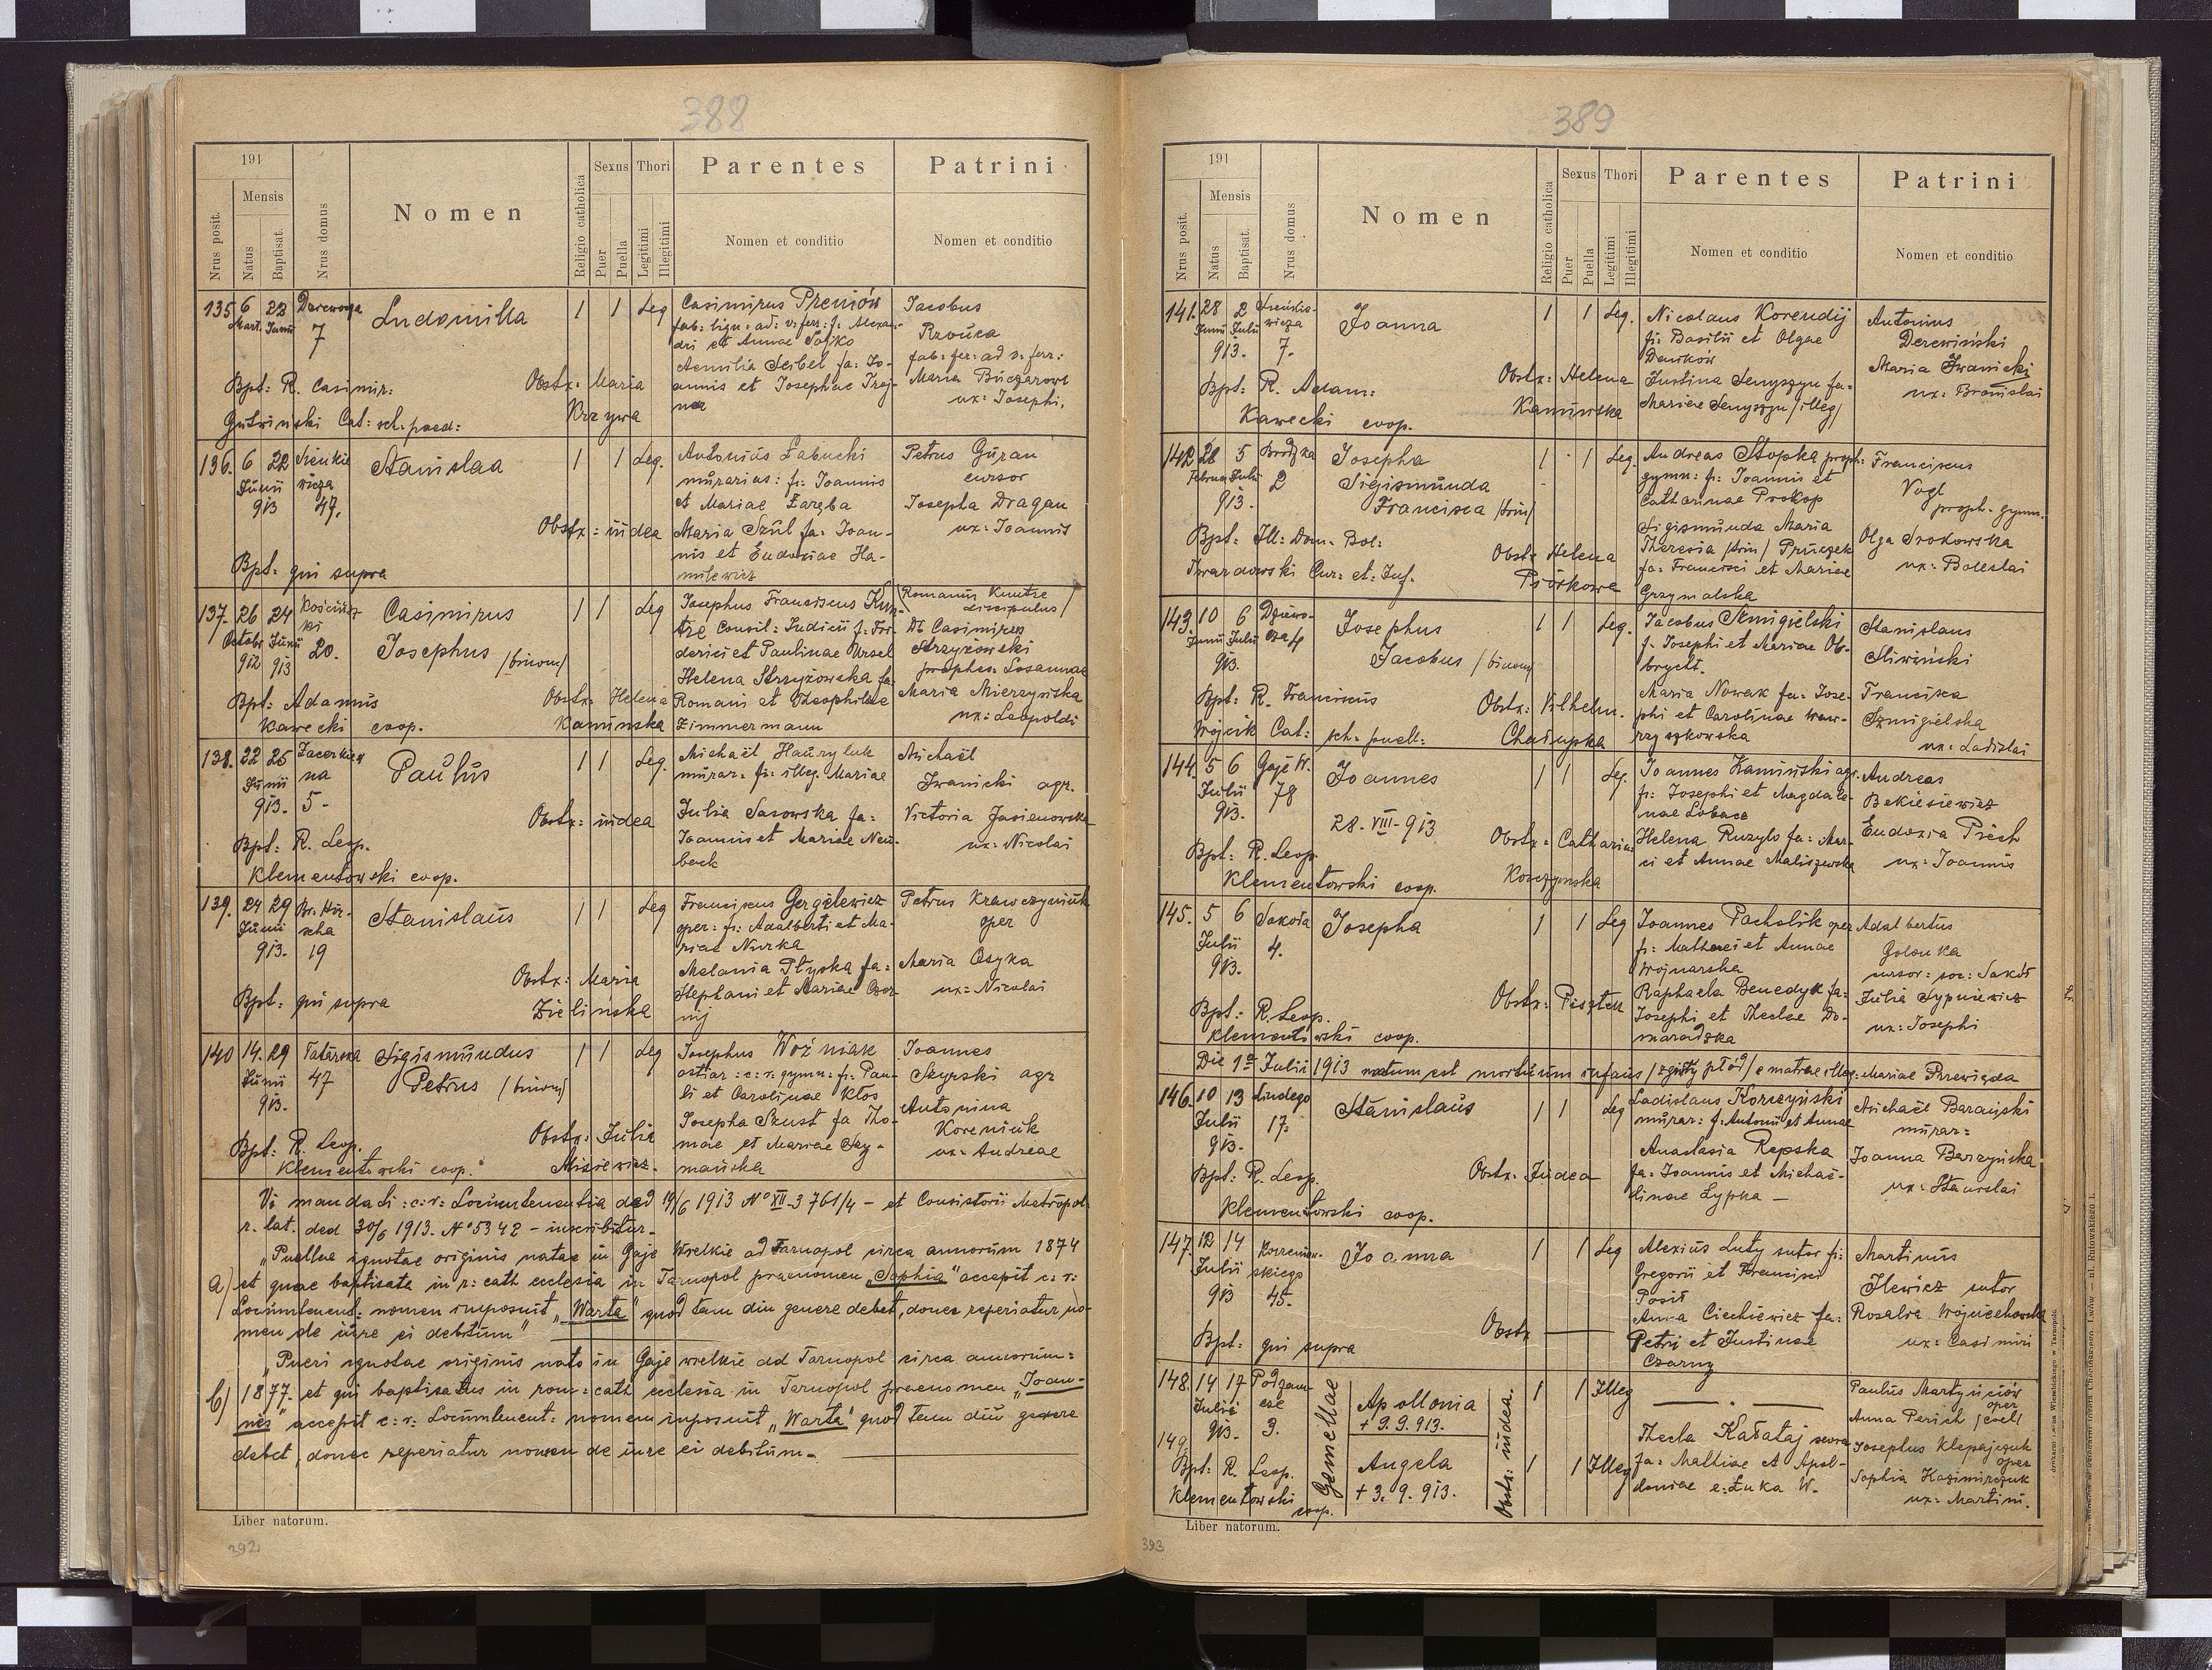 388
191
Nrus posit.
Mensis
Natus
Baptisat.
Nrus domus
Nomen
Religio catholica
Sexus
Puer
Puella
Thori
Legitimi
Illegitimi
Parentes
Nomen et conditio
Patrini
Nomen et conditio
135 6 22 7
Mart. Junii
Ludomilla
1 1 Leg
Casimirus Preniów
et Annae
Aemilia Seibel fa: Jo-
annis et Josephae
Jacobus
fab: fer: ad v. ferr:
Maria
ux: Josephi,
Bpt: R. Casimir:
Gutwiński Cat: sch. paed:
Obstx: Maria
Krzywa
136. 6 22 Sienkie
Junii wicza
913 47.
Stanislaa
1 1 Leg.
Antonius Łabucki
murarius: f: Joannis
et Mariae Zaręba
Maria Szul fa: Joan-
nis et Eudoxiae Ha-
nulewicz
Petrus Guran
cursor
Josepha Dragan
ux: Joannis
Obstx: iudea
Bpt: qui supra
137. 26 24
Octobr Junii
912 913 20.
Casimirus
Josephus /binom/
1 1 Leg
Josephus Franciscus Kun-
tze Consil: Judicii f: Fri-
derici et Paulinae Ursel
Helena Strzyżowska fa:
Romani et Theophilae
Zimmermann
/Romanus Kuntze
discipulus/
Dr Casimirus
Strzyżowski
Maria Mierzyńska
ux: Leopoldi
Bpt: Adamus
Kawecki coop.
Obstx: Helena
Kaminska
138. 22 25 Zacerkiew
Junii na
913. 5-
Paulus
1 1 Leg.
Michaël Hauryluk
murar: f: illeg. Mariae
Julia Sasowska fa:
Joannis et Mariae Neu-
beck
Michaël
Iwanicki agr.
Victoria Jasienowska
ux: Nicolai
Obstx: iudea
Bpt: R. Leop.
Klementowski coop.
139. 24 29 Br. Hir-
Junii scha
913. 19
Stanislaus
1 1 Leg
Franciscus Gergelewicz
oper: f: Adalberti et Ma-
riae Nurka
Melania Płyska fa:
Stephani et Mariae Czor
nij
Petrus Krawczyniuk
oper
Maria Osyka
ux: Nicolai
Obstx: Maria
Zielińska
Bpt: qui supra
140 14. 29 Tatarska
Junii 47
913.
Sigismundus
Petrus /binom/
1 1 Leg
Josephus Woźniak
ostiar: c: r: gymn: f: Pau-
li et Carolinae Kłos
Josepha Szust fa Tho-
mae et Mariae Szy-
mańska
Joannes
Szyrski agr
Antonina
Koreniuk
ux: Andreae
Obstx: Julia
Misiewicz.
Bpt: R. Leop.
Klementowski coop.
Vi mandati: c: r: Locumtenentia ded 19/6 1913 No XII-3761/4 - et Consistorii Metropol.
r. lat. ded 30/6 1913. No 5342 - inscribitur-
„Puellae ignotae originis natae in Gaje Wielkie ad Tarnopol circa annorum 1874
a) et quae baptisata in r: cath ecclesia in Tarnopol praenomen „Sophia" accepit c: r:
Locumtenent: nomen imposuit „Warta" quod tam diu genere debet, donec reperiatur no-
men de iure ei debitum"
„Pueri ignotae originis nato in Gaje wielkie ad Tarnopol circa annorum:
b) 1877. et qui baptisatus in rom: cath ecclesia in Tarnopol praenomen „Joan-
nes" accepit c: r: Locumtenent: nomen imposuit „Warta" quod tam diu genere
debet, donec reperiatur nomen de iure ei debitum.-
Liber natorum.
392
389
191
Nrus posit.
Mensis
Natus
Baptisat.
Nrus domus
Nomen
Religio catholica
Sexus
Puer
Puella
Thori
Legitimi
Illegitimi
Parentes
Nomen et conditio
Patrini
Nomen et conditio
141. 28 2 Sienkie-
Junii Julii wicza
913. 7.
Joanna
1 1 Leg.
Nicolaus Korendij
f: Basilii et Olgae
Justina Senyszyn fa:
Mariae Senyszyn /illeg/
Antonius
Derewiński
Maria Iwanicki
ux: Bronislai
Bpt: R. Adam:
Kawecki coop.
Obstx: Helena
Kaminska
142 28 5 Brodzka
Februar Julii 2
913.
Josepha
Sigismunda
Francisca /trin/
1 1 Leg.
Andreas Stopka proph:
gymn: f: Joannis et
Catharinae Prokop
Sigismunda Maria
Theresia /trin/ Pruczek
fa: Francisci et Mariae
Grzymalska
Franciscus
Vogl
proph. gymn.
Olga Srokowska
ux: Boleslai
Bpt: Ill: Dom. Bol:
Twardowski Cur: et: Inf.
Obstx Helena
Piórkowa
143. 10 6
Junii Julii
913.
Josephus
Jacobus /binom/
1 1 Leg.
Jacobus Szmigielski
f: Josephi et Mariae Ol-
brycht.
Maria Nowak fa: Jose-
phi et Carolinae Waw-
rzyszkowska
Stanislaus
Śliwiński
Francisca
Szmigielska
ux: Ladislai
Bpt: R. Franciscus
Wójcik Cat: sch: puell:
Obstx: Vilhelm.
Chałupka
144. 5 6 Gaje W.
Julii 78
913.
Joannes
28. VIII-913
1 1 Leg.
Joannes Kamiński agr.
f: Josephi et Magdale-
nae Łobacz
Helena Ruzyło fa: Mar-
ci et Annae Maliszewska
Andreas
Bekiesiewicz
Eudoxia Piech
ux: Joannis
Bpt: R. Leop.
Klementowski coop.
Obstx: Catharina
Korczynska
145. 5 6 Sokoła
Julii 4.
913.
Josepha
1 1 Leg
Joannes Pacholik oper
f: Mathaei et Annae
Wojnarska
Raphaela Benedyk fa:
Josephi et Theclae Do-
maradzka
Adalbertus
Golonka
cursor: soc: Sokół
Julia Sypniewicz
ux: Josephi
Obstx: Pisztek
Bpt: R. Leop.
Klementowski coop.
Die 1a Julii 1913 natum est mortuum infans /zgniły płód/ e matre illeg: Mariae Przewięda
146. 10 13 Lindego
Julii 17.
913.
Stanislaus
1 1 Leg
Ladislaus Korczyński
murar: f: Antonii et Annae
Anastasia Repska
fa: Joannis et Michae-
linae Łypka -
Michaël Barański
murar:
Joanna Barzyńska
ux: Stanislai
Obstx: Judea
Bpt: R. Leop.
Klementowski coop.
147. 12 14
Julii skiego
913 45.
Joanna
1 1 Leg
Alexius Luty sutor f:
Gregorii et Francisci
Posił
Anna Ciechiewicz fa:
Petri et Justinae
Czarny
Martinus
Ilewicz sutor
Rosalia Wojciechowska
ux: Casimiri
Obstx
Bpt: qui supra
148. 14 17 Podzam-
Julii cze
913- 3.
149.
Gemellae
Apollonia
+ 9.9.913.
Angela
+ 3.9.913.
Obstx: iudea.
1 1 Illeg
1 1 Illeg
Thecla Kałataj
fa: Matthiae et Apol-
loniae e: Łuka W.
Paulus Martyńciów
oper
Anna Perich /coel/
Josephus Klepajczuk
oper
Sophia Kazimirczuk
ux: Martini.
Bpt: R. Leop.
Klementowski
coop.
Liber natorum.
393